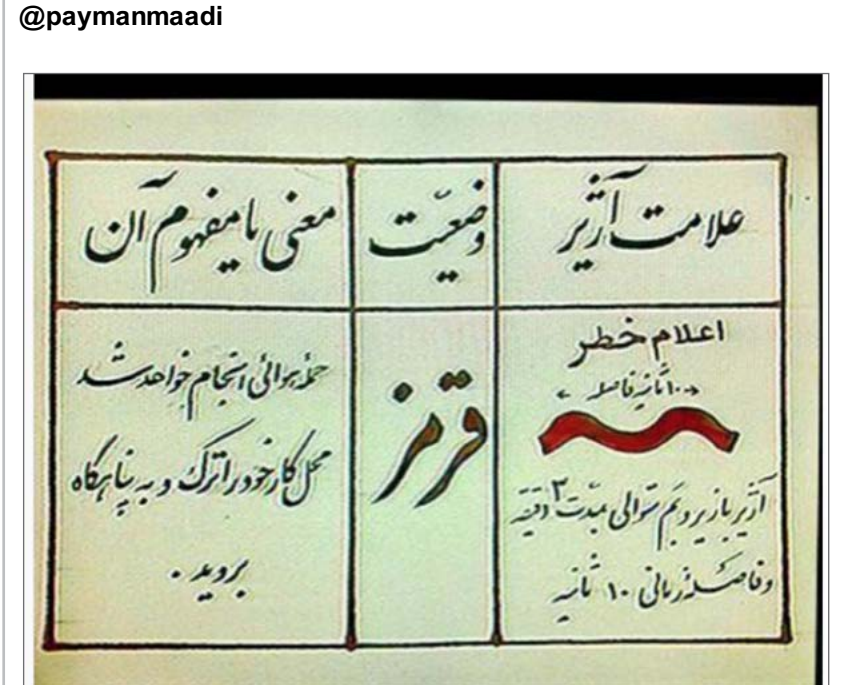 @paymanmaadi
علامت آژیر
وضعیّت
معنی یا مفهوم آن
اعلام خطر
←۱۰ ثانیه فاصله→
آژیر با زیر و بم متوالی بمدّت ۳ دقیقه
و فاصله زمانی ۱۰ ثانیه
قرمز
حمله هوائی انجام خواهد شد
محل کار خود را ترک و به پناهگاه
بروید .